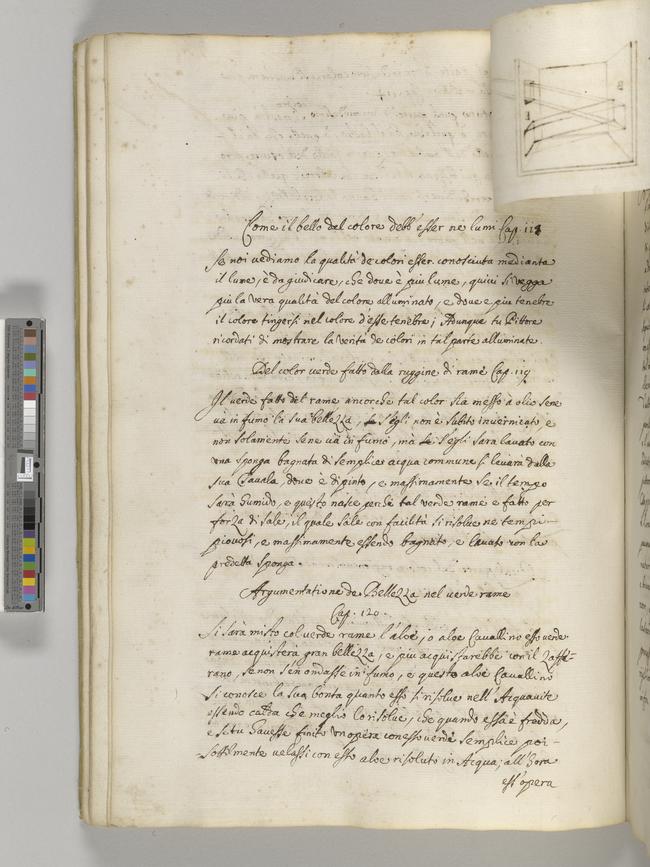 Come il bello del colore debb'esser ne lumi Cap. 118
Se noi vediamo la qualità de colori esser conosciuta mediante
il lume, è da giudicare, che dove è più lume, quivi si vegga
più la vera qualità del colore alluminato, e dove e piu tenebre
il colore tingersi nel colore d'esse tenebre; Adunque tu Pittore
ricordati di mostrare la verità de colori in tal parte alluminate.
Del color verde fatto dalla ruggine di rame Cap. 119
Il verde fatto del rame ancorche tal color sia messo a olio sene
va in fumo la sua bellezza, s'egli non è subito invernicato, e
non solamente sene và in fumo, mà s'egli sarà lavato con
una sponga bagnata di semplice acqua commune si lavarà dalla
sua Tavola, dove è dipinto, e massimamente se il tempo
sarà humido, e questo nasce perche tal verde rame e fatto per
forza di sale, il quale sale con facilità si risolve ne tempi
piovosi, e massimamente essendo bagnato, e lavato con la
predetta sponga.
Argumentatione de Bellezza nel verde rame
Cap. 120.
Si sarà misto col verde rame l'aloe, o aloe Cavallino esso verde
rame acquisterà gran bellezza, e più acquistarebbe con il Zaffe-
rano, se non s'en'andasse in fumo, e questo aloe Cavallino
si conosce la sua bontà quanto esso si risolve nell'Acquavite
essendo calda che meglio lo risolve, che quando essa è fredda,
e se tu havesse finito un opera con esso verde semplice poi
sottilmente velassi con esso aloe risoluto in Acqua; all'hora
ess'opera